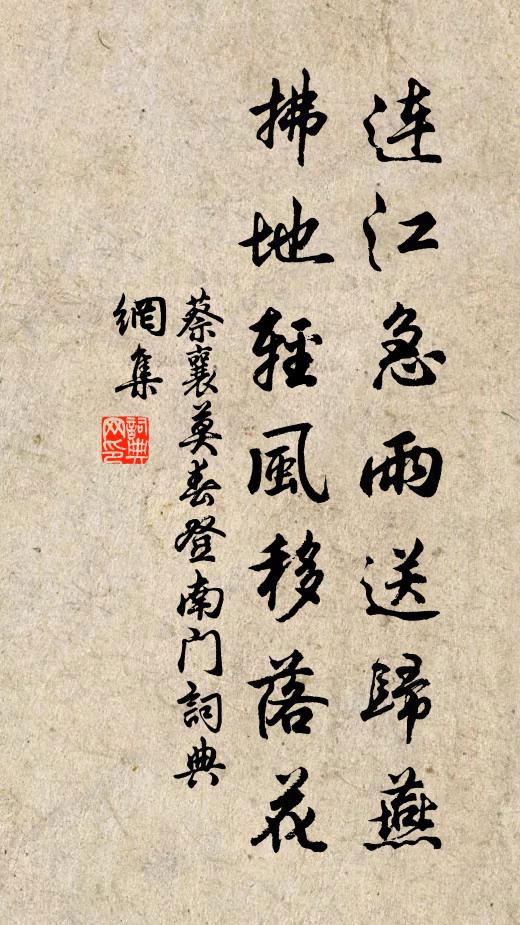 連江急雨送歸燕
拂地輕風移落花
蔡襄莫春登南门詞典
網集
詞典
网印